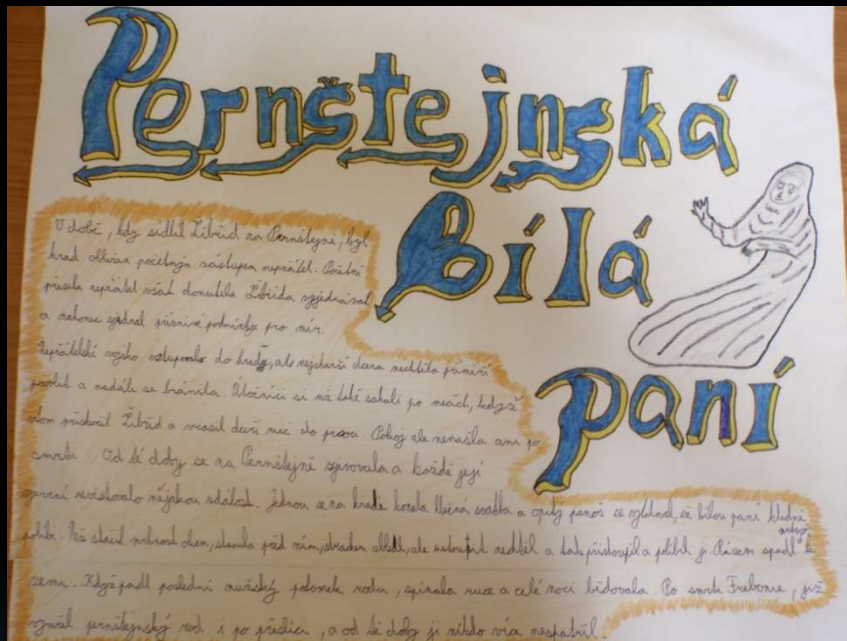 Pernštejnská
Bílá
paní
V době, kdy sídlil Žibřid na Pernštejně, byl
hrad oblehán početným zástupem nepřátel. Početní
přesila nepřátel však donutila Žibřida vyjednávat
a nakonec sjednal příznivé podmínky pro mír.
Nepřátelské vojsko vstupovalo do hradu, ale nejstarší dcera nechtěla příměří
povolit a nadále se bránila. Útočníci si už také sahali po mečích, když
přiskočil Žibřid a vrazil dceři meč do prsou. Pokoj ale nenašla ani po
smrti. Od té doby se na Pernštejně zjevovala a každé její
zjevení věstovalo nějakou událost. Jednou se na hradě konala svatba a opilý panoš se, že bílou paní klidně
políbí. Než stačil mrknout okem, stanula před ním, strachem, ale ustoupit nechtěl a tak přistoupil a políbil ji. Rázem spadl k
zemi. Když padl poslední mužský potomek rodu, spínala ruce a celé noci bědovala. Po smrti, již
vymřel pernštejnský rod i po přeslici, a od té doby ji nikdo více nespatřil.